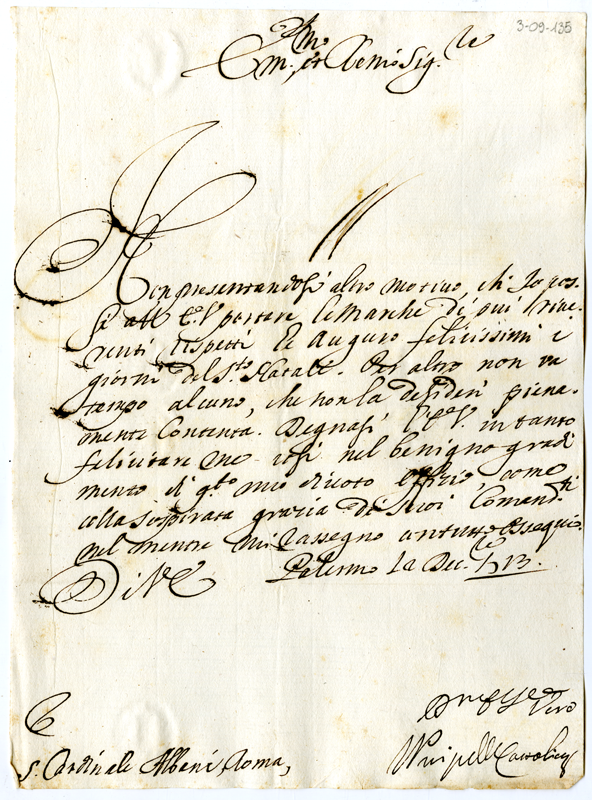 3-09-135
Em.mo et Rev.mo Sig.re
Non presentandosi altro motivo, ch' Io pos-
sa all' E.V. portare le Marche di più rive-
renti rispetti Le Auguro felicissimi e
giorni del S.to Natale. Per altro non va
tempo alcuno, che non la desideri piena-
mente Contenta. Degnasi l'E.V. in tanto
felicitare me così nel benigno gradi
mento di q.to mio divoto offizio, come
colla sospirata grazia de Suoi Comandi
nel mentre mi rassegno con tutto ossequio.
Di V.E. Palermo la Dec. 1713.
S. Cardinale Albani, Roma,